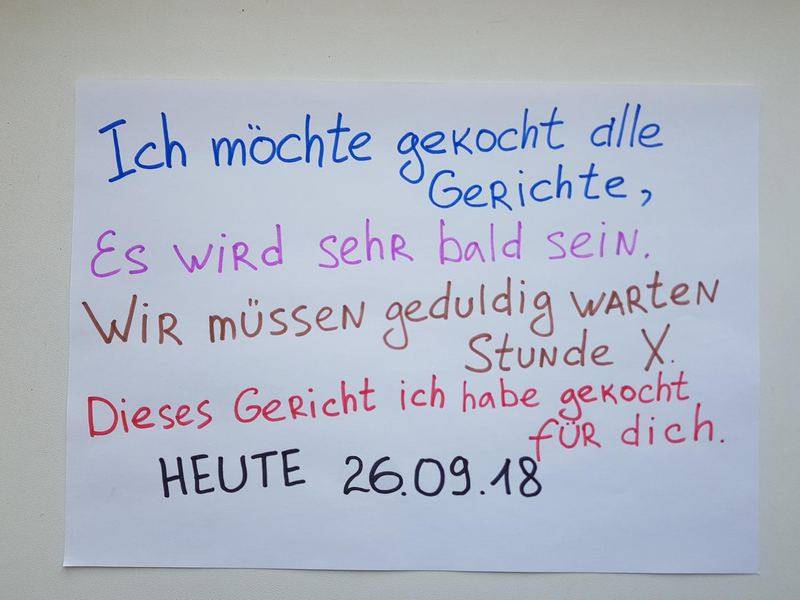 Ich möchte gekocht alle
Gerichte,
Es wird sehr bald sein.
Wir müssen geduldig warten
Stunde X.
Dieses Gericht ich habe gekocht
für dich.
HEUTE 26.09.18